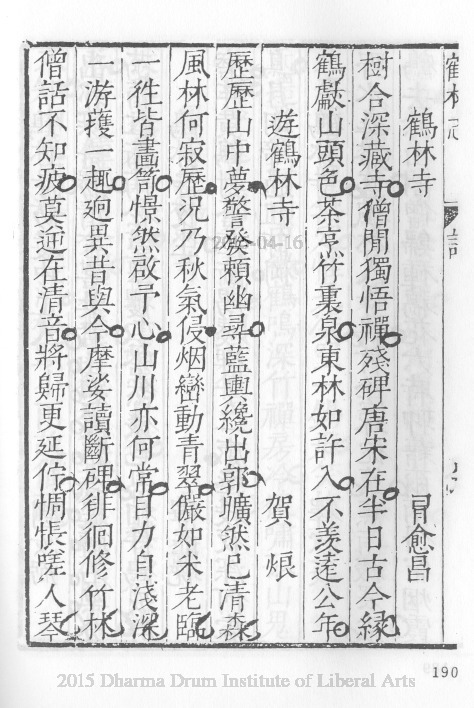 鶴林寺 冒愈昌
樹合深藏寺僧閒獨悟禪殘碑唐宋在半日古今緣
鶴獻山頭色茶烹竹裏泉東林如許入不羨遠公年
遊鶴林寺 賀烺
歷歷山中夢警發賴幽尋藍輿纔出郭曠然已清森
風林何寂歷况乃秋氣侵烟巒動青翠儼如米老臨
一徃皆畫笥憬然啟予心山川亦何常目力自淺深
一游獲一趣逈異昔與今摩娑讀斷碑徘徊修竹林
僧話不知疲莫逆在清音將歸更延佇惆悵嗟人琴
190
2015 Dharma Drum Institute of Liberal Arts